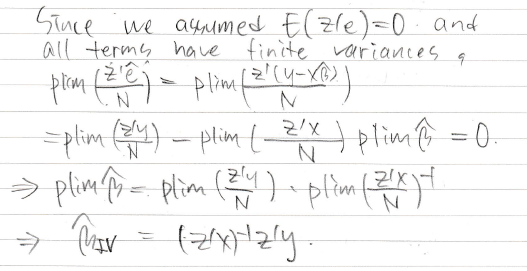 Since we assumed E(z'e)=0 and
all terms have finite variances,
plim (z'ê/N) = plim (z'(y-xβ̂)/N)
=plim (z'y/N) - plim (z'x/N) plim β̂ = 0.
⇒ plim β̂ = plim (z'y/N) · plim (z'x/N)⁻¹
⇒ β̂IV = (z'x)⁻¹z'y.